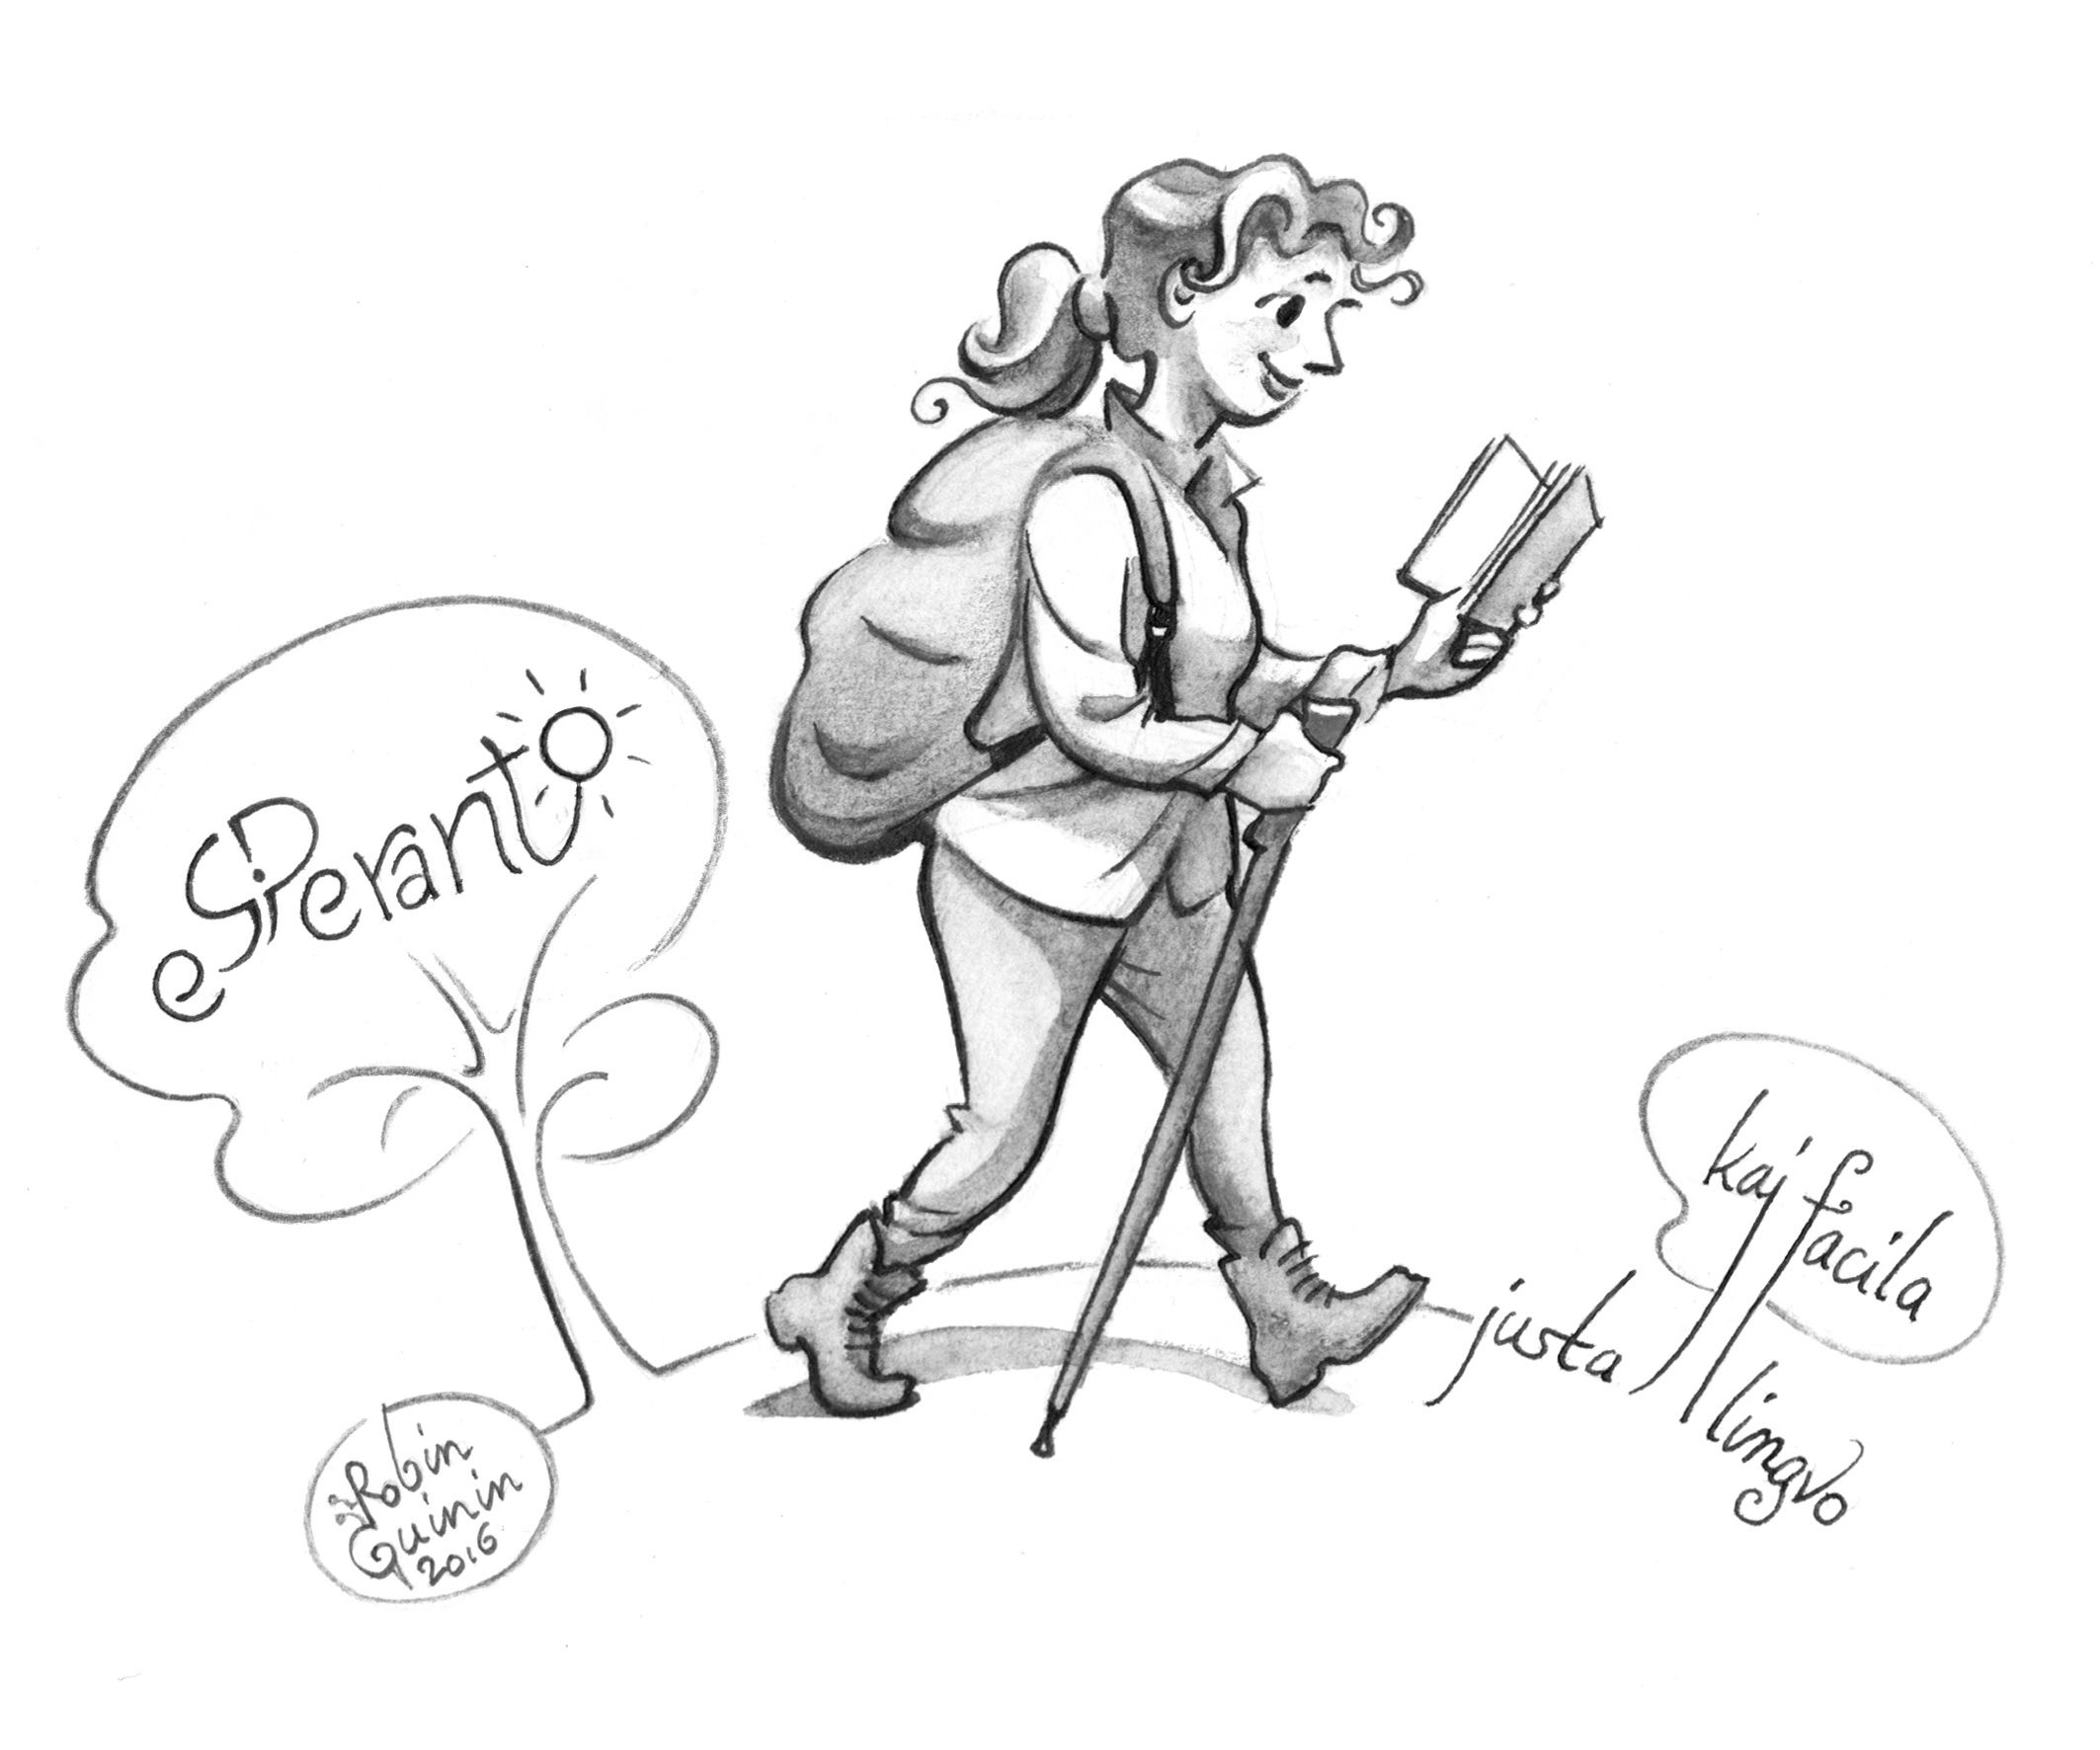 esperanto
justa
kaj facila
lingvo
Robin
Guinin
2016